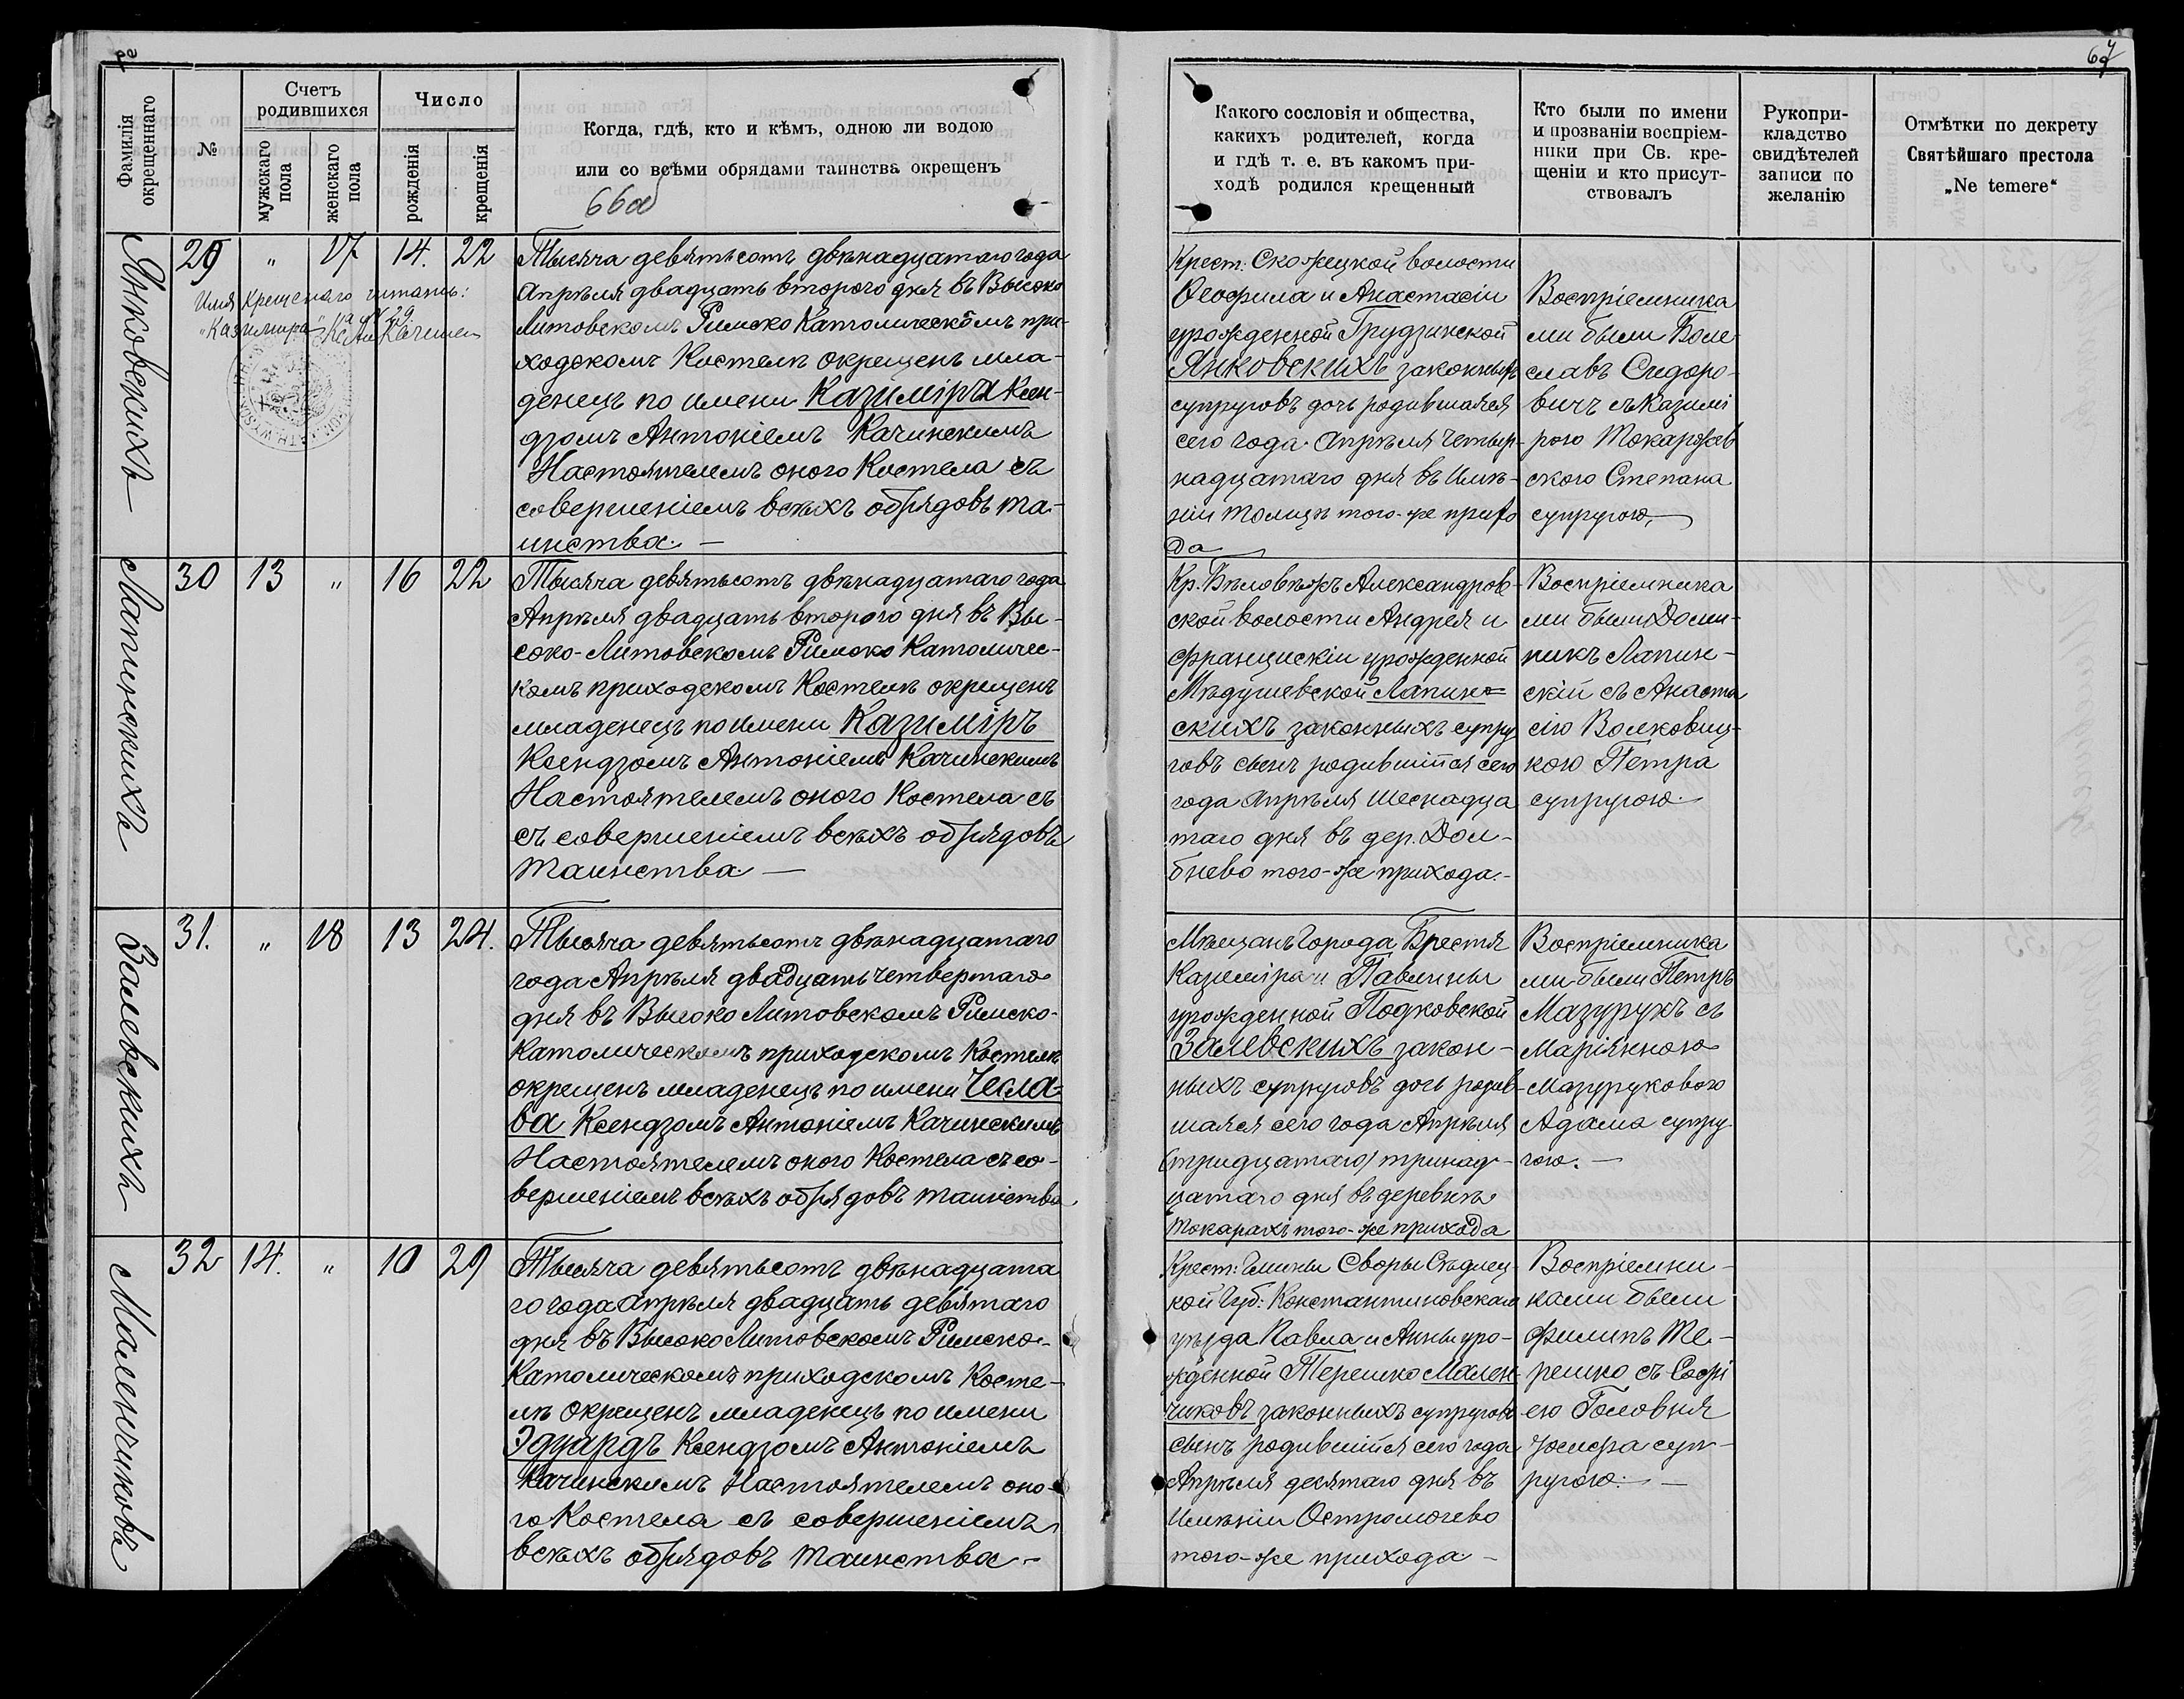 67
Фамилія окрещеннаго
№
Счетъ родившихся
мужскаго пола
женскаго пола
Число
рожденія
крещенія
Когда, гдѣ, кто и кѣмъ, одною ли водою
или со всѣми обрядами таинства окрещенъ
66об
Какого сословія и общества,
какихъ родителей, когда
и гдѣ т. е. въ какомъ при-
ходѣ родился крещенный
Кто были по имени
и прозваніи воспріем-
ники при Св. кре-
щеніи и кто присут-
ствовалъ
Рукопри-
кладство
свидѣтелей
записи по
желанію
Отмѣтки по декрету
Святѣйшаго престола
„Ne temere“
Янковскихъ
29 " 17 14. 22
Имя крещенаго читать:
"Казимира"
Тысяча девятьсотъ двѣнадцатаго года
Апрѣля двадцать второго дня въ Высоко
Литовскомъ Римско Католическомъ при-
ходскомъ Костелѣ окрещенъ мла-
денецъ по имени Казиміра Ксен-
дзомъ Антоніемъ Качинскимъ
Настоятелемъ оного Костела съ
совершеніемъ всѣхъ обрядовъ та-
инства. —
Крест: Скокецкой волости
Ѳеофила и Анастасіи
урожденной Грудзинской
Янковскихъ законныхъ
супруговъ дочь родившаяся
сего года Апрѣля четыр-
надцатаго дня въ Имѣ-
ніи Толицы того-же прихо
да
Воспріемника
ми были Боле-
славъ Сидоро-
вичъ съ Казимі
рою Токаржев
скою Степана
супругою,
Лапинскихъ
30 13 " 16 22
Тысяча девятьсотъ двѣнадцатаго года
Апрѣля двадцать второго дня въ Вы-
соко-Литовскомъ Римско Католичес-
комъ приходскомъ Костелѣ окрещенъ
младенецъ по имени Казиміръ
Ксендзомъ Антоніемъ Качинскимъ
Настоятелемъ оного Костела съ
съ совершеніемъ всѣхъ обрядовъ
Таинства —
Кр. Бѣловѣжъ Александров-
ской волости Андрея и
Францискіи урожденной
Мѣдушевской Лапин=
скихъ законныхъ супру
говъ сынъ родившійся сего
года Апрѣля шеснадца
таго дня въ дер. Дол-
бнево того-же прихода.-
Воспріемника
ми были Доми-
никъ Лапин-
скій съ Анаста
сію Волковиц-
кою Петра
супругою.
Залевскихъ
31. " 18 13 24.
Тысяча девятьсотъ двѣнадцатаго
года Апрѣля двадцать четвертаго
дня въ Высоко Литовскомъ Римско-
Католическомъ приходскомъ Костелѣ
окрещенъ младенецъ по имени Чесла-
ва Ксендзомъ Антоніемъ Качинскимъ
Настоятелемъ оного Костела съ со-
вершеніемъ всѣхъ обрядовъ таинства
Мѣщанъ Города Бреста
Казиміра и Павлины
урожденной Подковской
Залевскихъ закон-
ныхъ супруговъ дочь родив-
шаяся сего года Апрѣля
(тридцатаго) тринад-
цатаго дня въ деревнѣ
Токарахъ того-же прихода
Воспріемника
ми были Петръ
Мазурукъ съ
Маріянною
Мазуруковою
Адама супру-
гою. —
Маленчиковъ
32 14. " 10 29
Тысяча девятьсотъ двѣнадцата
го года Апрѣля двадцать девятаго
дня въ Высоко Литовскомъ Римско-
Католическомъ приходскомъ Косте-
лѣ окрещенъ младенецъ по имени
Эдуардъ Ксендзомъ Антоніемъ
Качинскимъ Настоятелемъ оно-
го Костела съ совершеніемъ
всѣхъ обрядовъ таинства. -
Крест: Гмины Своры Сѣдлец-
кой Губ: Константиновскаго
уѣзда Павла и Анны уро-
жденной Терешко Мален-
чиковъ законныхъ супруговъ
сынъ родившійся сего года
Апрѣля десятаго дня въ
Имѣніи Остромечево
того-же прихода -
Воспріемни-
ками были
Филипъ Те-
решко съ Софі
ею Головня
Іосифа суп-
ругою. —